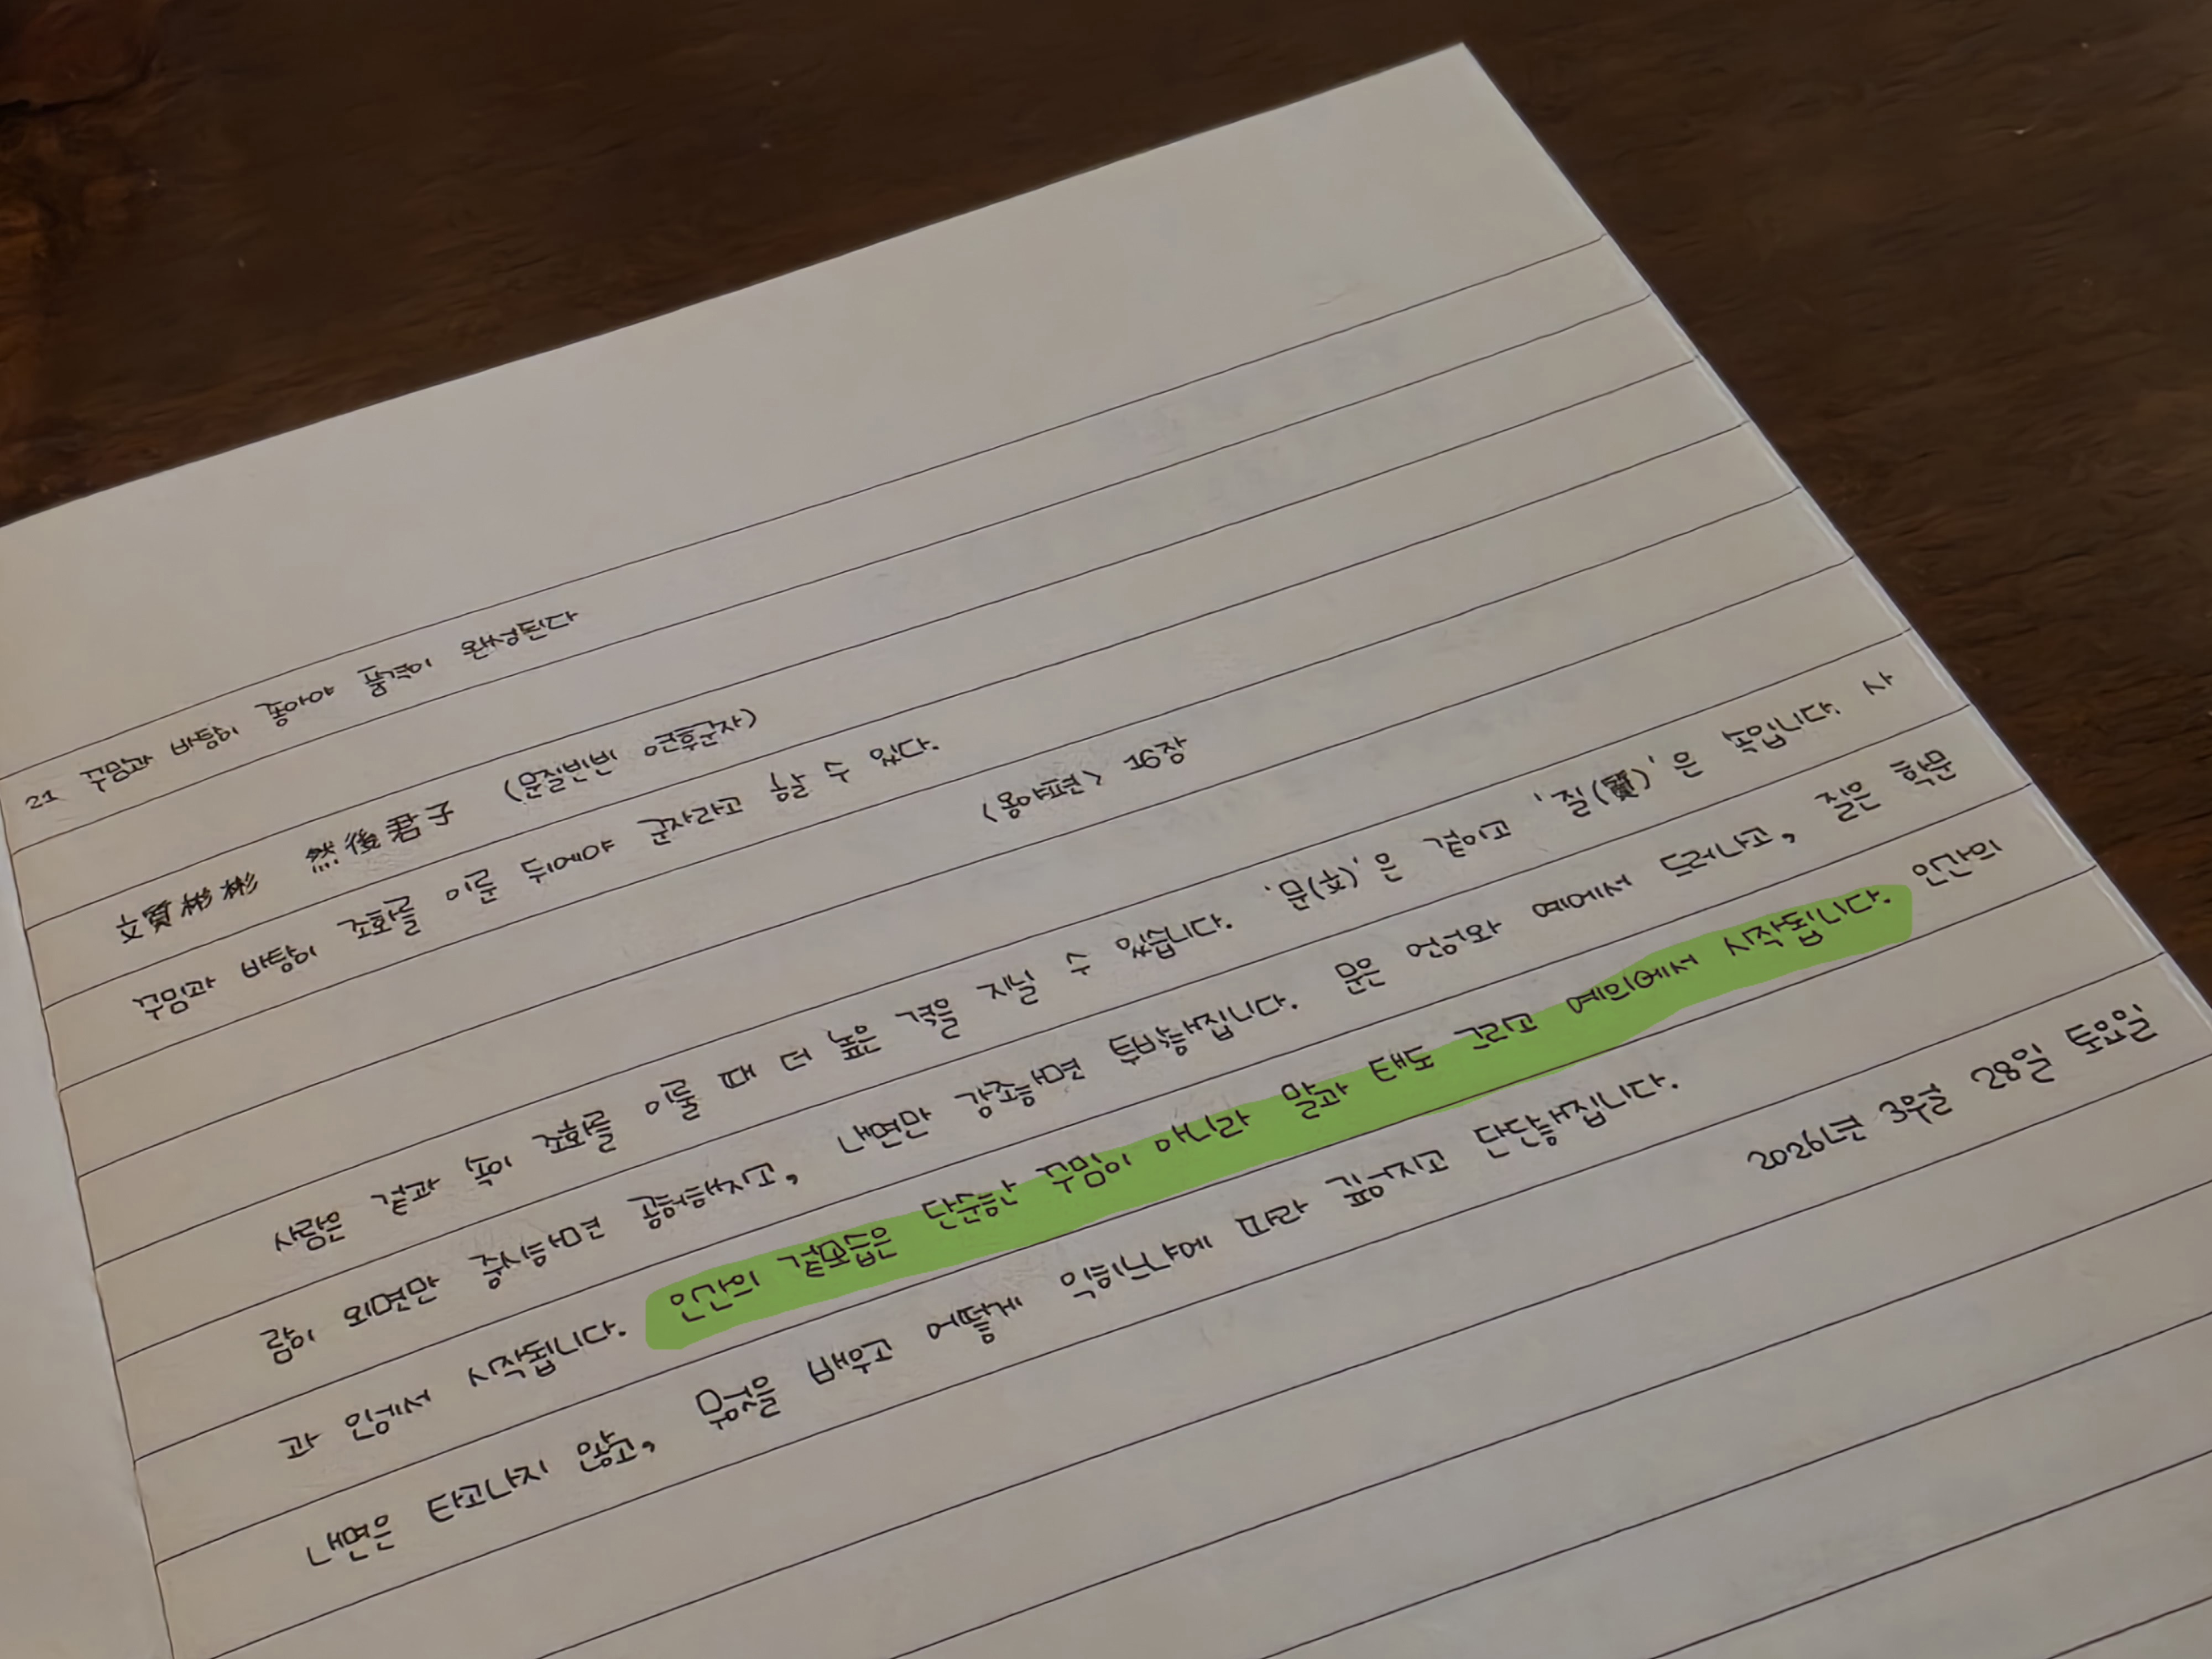 21 꾸밈과 바탕이 좋아야 품격이 완성된다
文質彬彬 然後君子 (문질빈빈 연후군자)
꾸밈과 바탕이 조화를 이룬 뒤에야 군자라고 할 수 있다.
<옹야편> 16장
사람은 겉과 속이 조화를 이룰 때 더 높은 격을 지닐 수 있습니다. '문(文)'은 겉이고 '질(質)'은 속입니다. 사
람이 외면만 중시하면 공허해지고, 내면만 강조하면 투박해집니다. 문은 언어와 예에서 드러나고, 질은 학문
과 인에서 시작됩니다. 인간의 겉모습은 단순한 꾸밈이 아니라 말과 태도 그리고 예의에서 시작됩니다. 인간의
내면은 타고나지 않고, 무엇을 배우고 어떻게 익히느냐에 따라 깊어지고 단단해집니다.
2026년 3월 28일 토요일